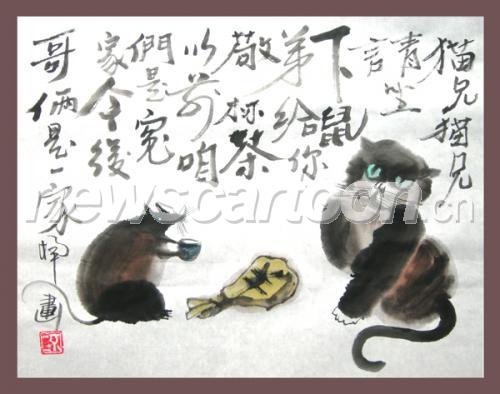 猫兄猫兄。
請坐
下鼠
弟给你
敬杯茶
以前咱
們是冤
家今後
哥俩是一家
畫
newscartoon.cn